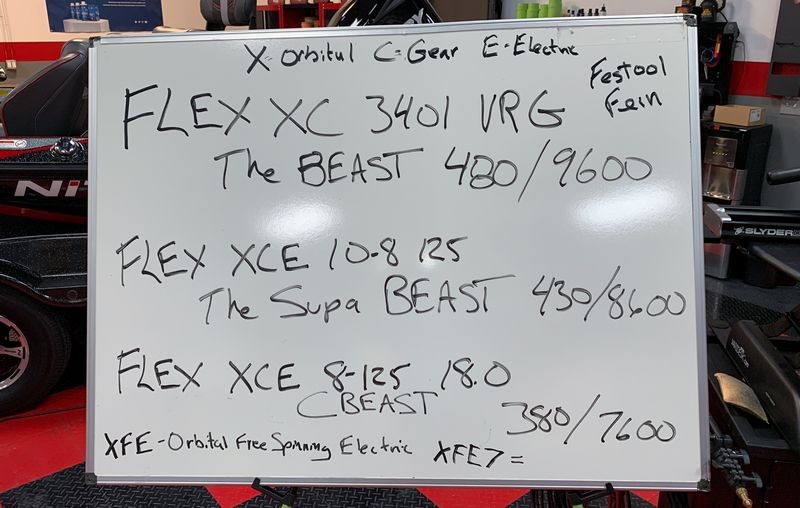 X- Orbitul C-Gear E-Electric
Festool
Fein
FLEX XC 3401 VRG
The BEAST 480/9600
FLEX XCE 10-8 125
The Supa BEAST 430/8600
FLEX XCE 8-125 18.0
CBEAST 380/7600
XFE - Orbital Free Spinning Electric XFE7 =
Ni
SLYDER